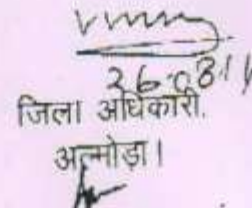 26.08.11
जिला अधिकारी.
अल्मोड़ा।